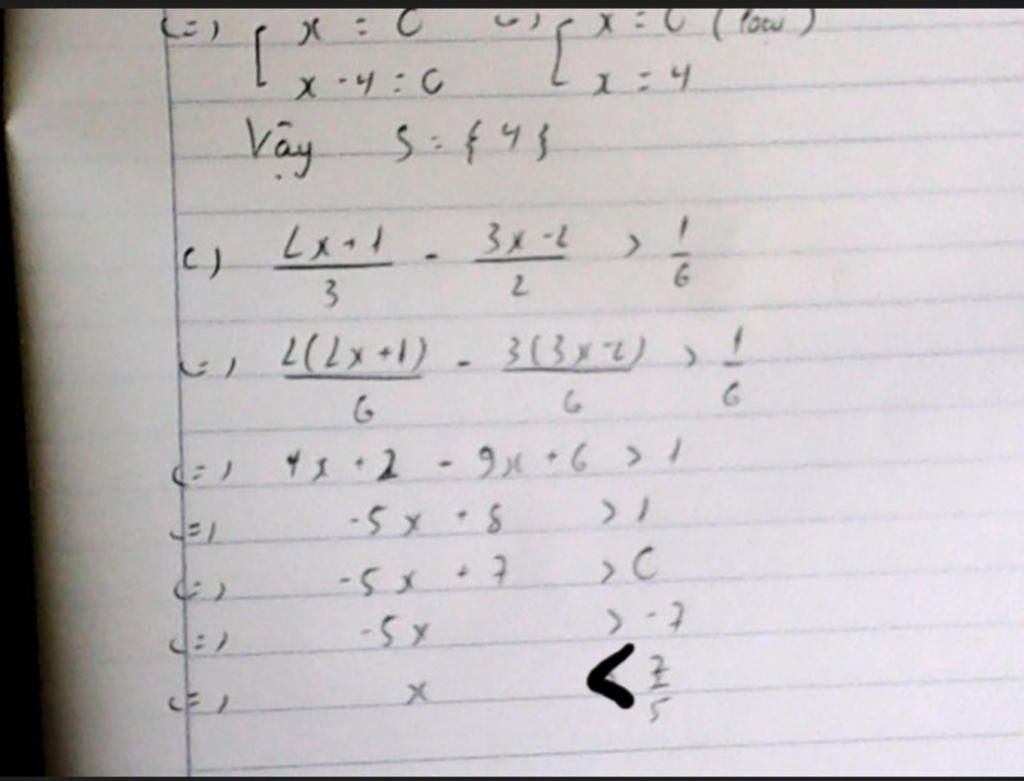 <=> [ x = 0 <=> [ x = 0 (loại)
x - 4 = 0 x = 4
Vậy S = { 4 }
c) (2x + 1)/3 - (3x - 2)/2 > 1/6
<=> 2(2x + 1)/6 - 3(3x - 2)/6 > 1/6
<=> 4x + 2 - 9x + 6 > 1
<=> -5x + 8 > 1
<=> -5x + 7 > 0
<=> -5x > -7
<=> x < 7/5